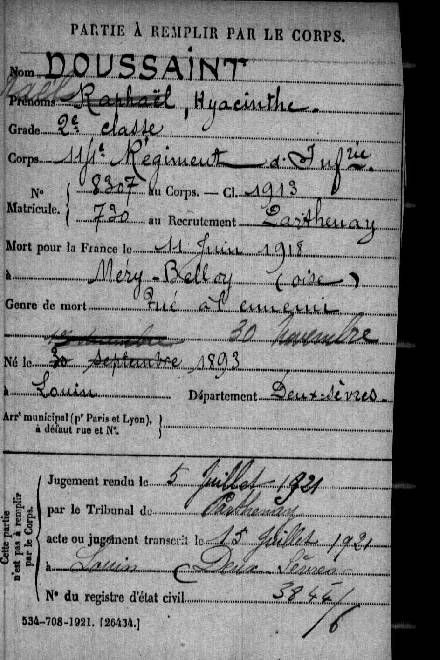 PARTIE À REMPLIR PAR LE CORPS.
Nom DOUSSAINT
Prénoms Raphaël, Hyacinthe.
Grade 2e classe
Corps Régiment d'Infrie.
N° Matricule. 8307 au Corps. — Cl. 1913
730 au Recrutement Parthenay
Mort pour la France le 11 Juin 1918
à Méry-Belloy (oise)
Genre de mort Tué à l'ennemi
30 novembre
Né le 30 septembre 1893
à Louin Département Deux-Sèvres.
Arrt municipal (pr Paris et Lyon),
à défaut rue et N°.
Cette partie n'est pas à remplir par le Corps.
Jugement rendu le 5 Juillet 1921
par le Tribunal de Parthenay
acte ou jugement transcrit le 15 Juillet 1921
à Louin Deux Sèvres
N° du registre d'état civil 3844/6
534-708-1921. [26434.]